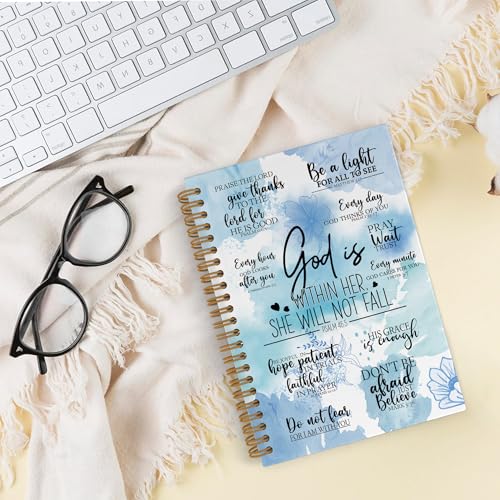 PRAISE THE LORD
give thanks
TO THE
lord for
HE IS GOOD
Be a light
FOR ALL TO SEE
Every day
GOD THINKS OF YOU
PRAY
Wait
TRUST
Every hour
GOD LOOKS
after you
Every minute
GOD CARES FOR YOU
God is
WITHIN HER,
SHE WILL NOT FALL
PSALM 46:5
HIS GRACE
is enough
JOYFUL IN
hope patient
IN TRIALS
faithful
IN PRAYER
DON'T BE
afraid
JUST
Believe
MARK 5:36
Do not fear
FOR I AM WITH YOU